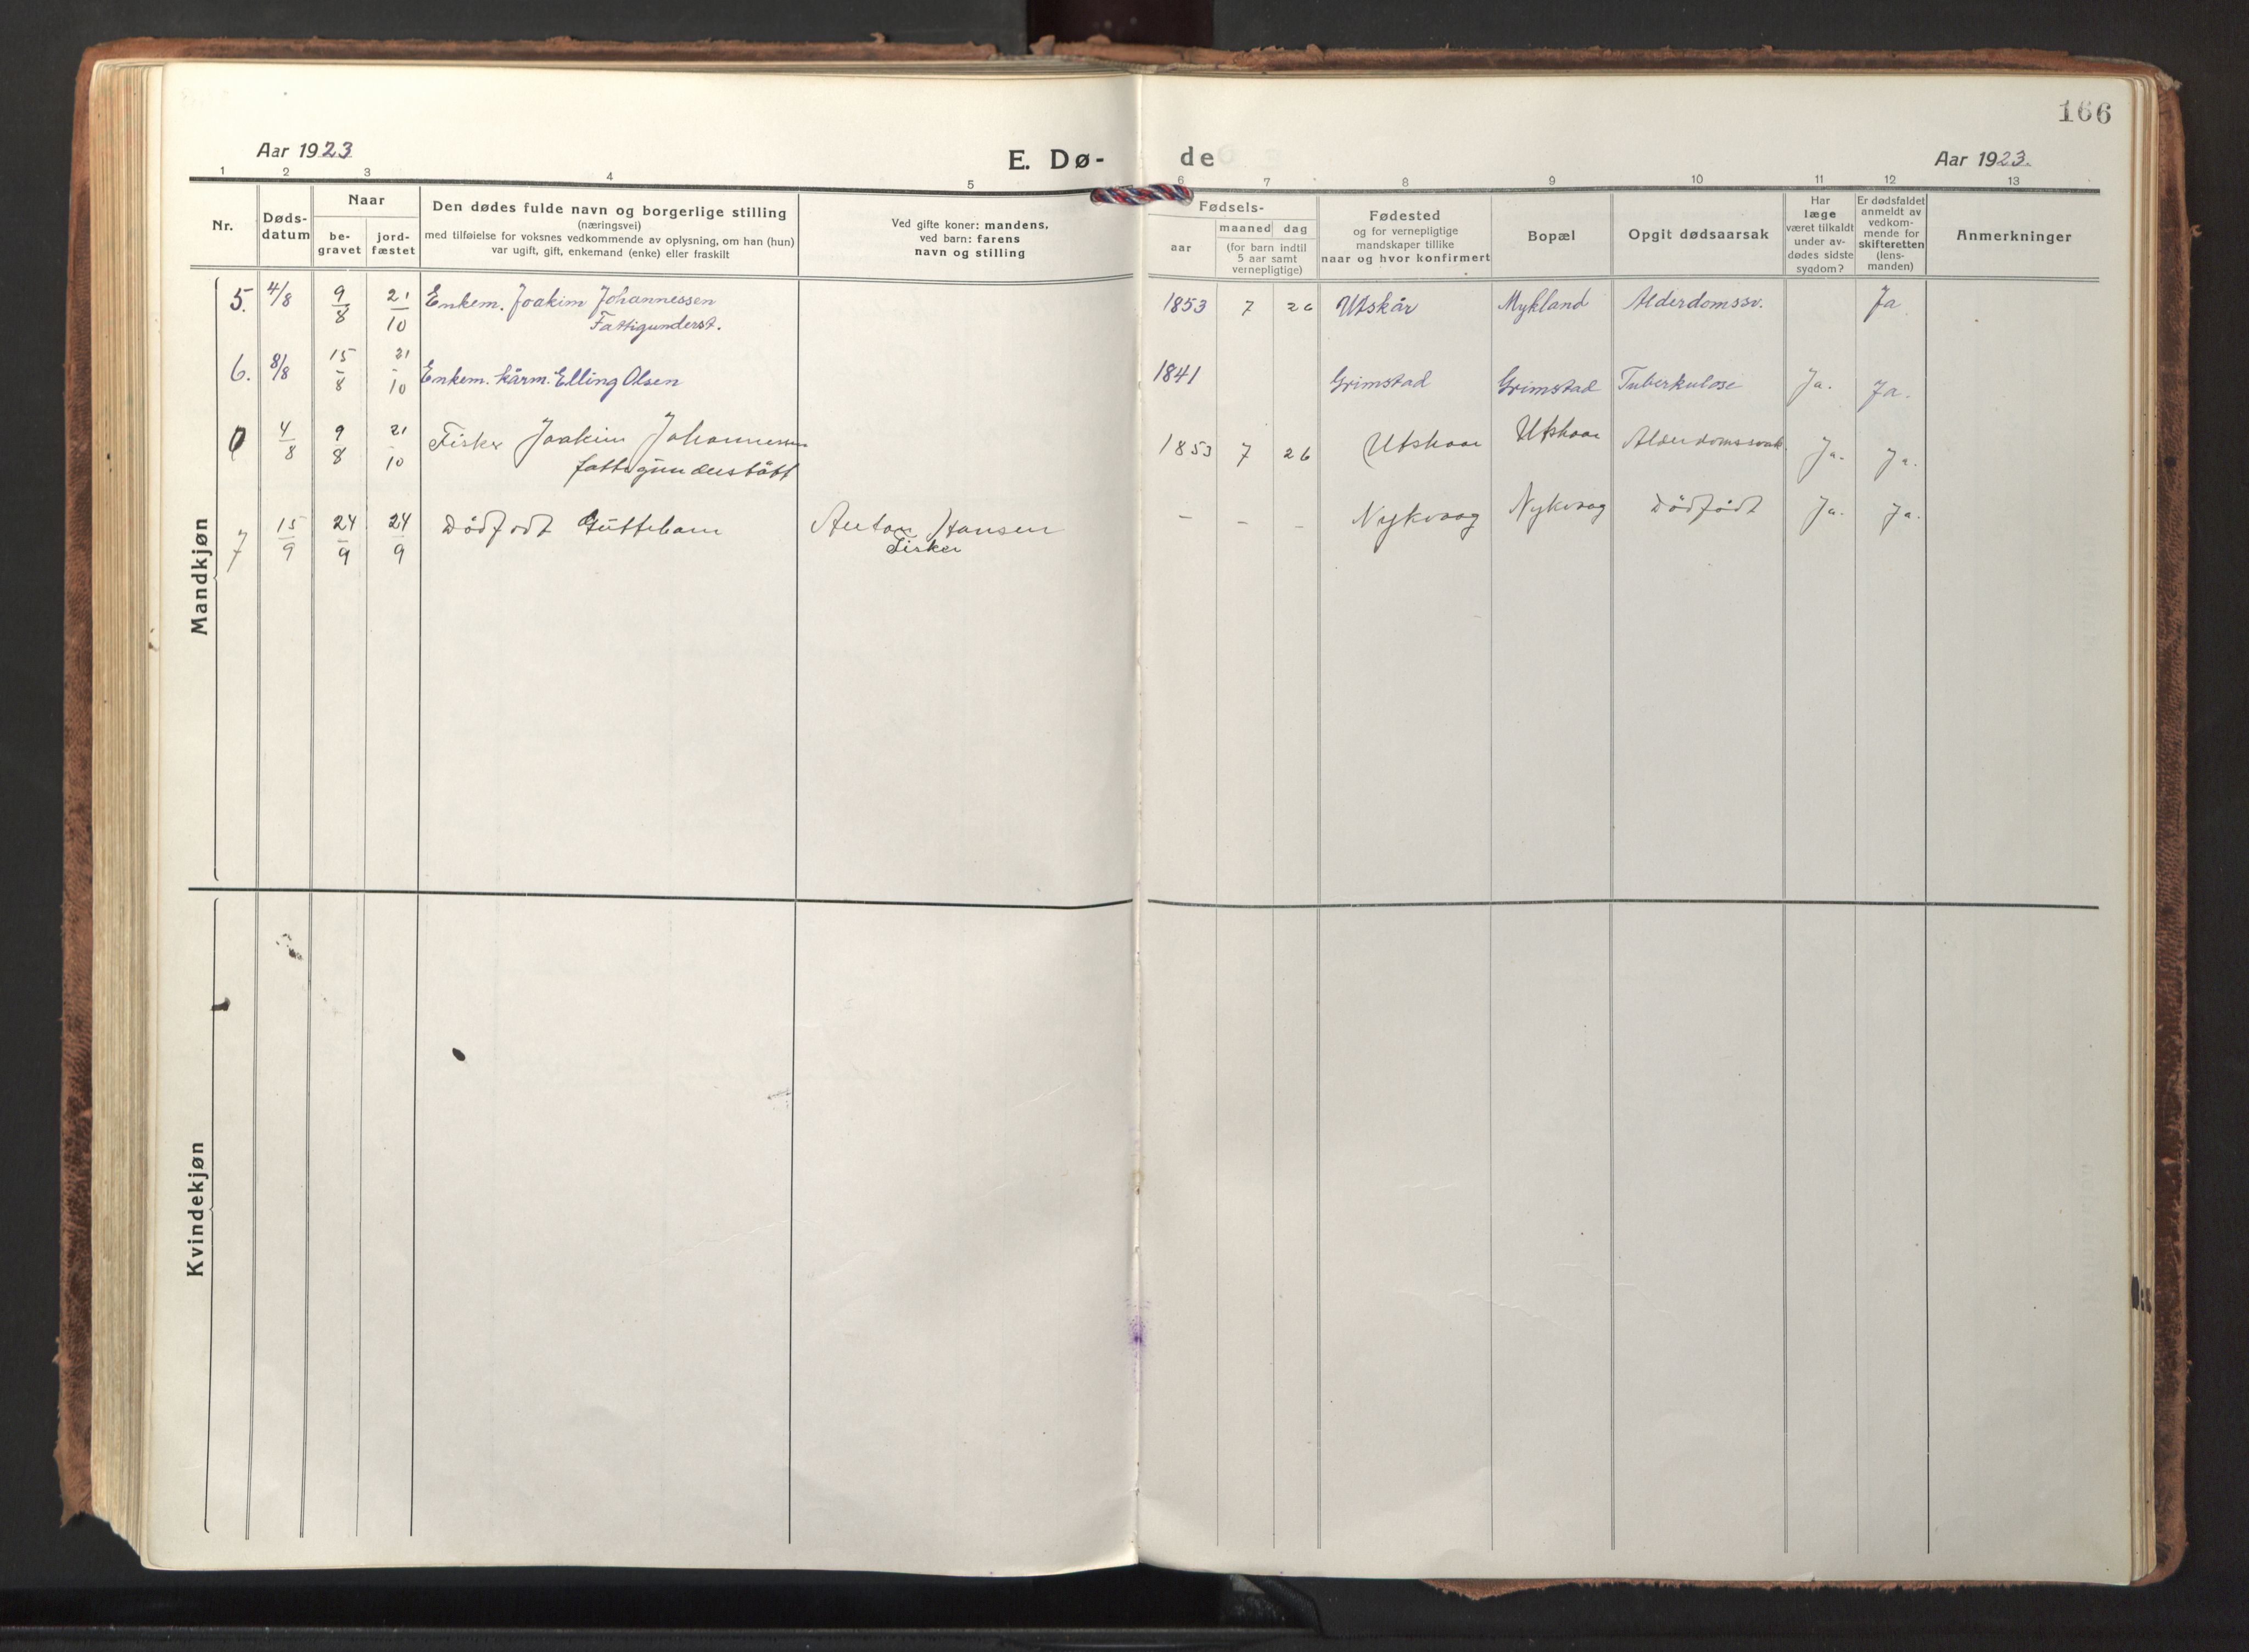 166
Aar 1923
E. Dø-
de
Aar 1923.
1 2 3 4 5 6 7 8 9 10 11 12 13
Nr.
Døds-
datum
Naar
be-
gravet
jord-
fæstet
Den dødes fulde navn og borgerlige stilling
(næringsvei)
med tilføielse for voksnes vedkommende av oplysning, om han (hun)
var ugift, gift, enkemand (enke) eller fraskilt
Ved gifte koner: mandens,
ved barn: farens
navn og stilling
Fødsels-
aar
maaned dag
(for barn indtil
5 aar samt
vernepligtige)
Fødested
og for vernepligtige
mandskaper tillike
naar og hvor konfirmert
Bopæl
Opgit dødsaarsak
Har
læge
været tilkaldt
under av-
dødes sidste
sygdom?
Er dødsfaldet
anmeldt av
vedkom-
mende for
skifteretten
(lens-
manden)
Anmerkninger
Mandkjøn
5. 4/8 9/8 21/10 Enkem. Joakim Johannessen 1853 7 26 Utskår Mykland Alderdomssv. Ja
Fattigunderst.
6. 8/8 15/8 21/10 Enkem. kårm. Elling Olsen 1841 Grimstad Grimstad Tuberkulose Ja. Ja.
4/8 9/8 21/10 Fisker Joakim Johannessen 1853 7 26 Utskaar Utskaar Alderdomssvak. Ja. Ja.
fattigunderstått
7 15/9 24/9 24/9 Dødfødt Guttebarn Anton Hansen - - - Nykvaag Nykvaag Dødfødt Ja. Ja.
Fisker
Kvindekjøn